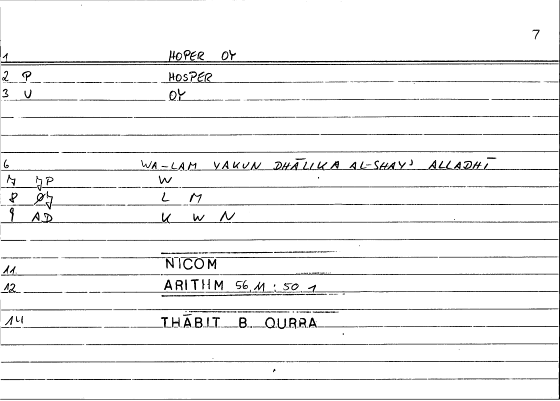 7
1 HOPER OY
2 P HOSPER
3 U OY
6 WA-LAM YAKUN DHĀLIKA AL-SHAYʾ ALLADHĪ
7 JP W
8 L M
9 AD K W N
11 NICOM
12 ARITHM 56,11 : 50 1
14 THĀBIT B. QURRA